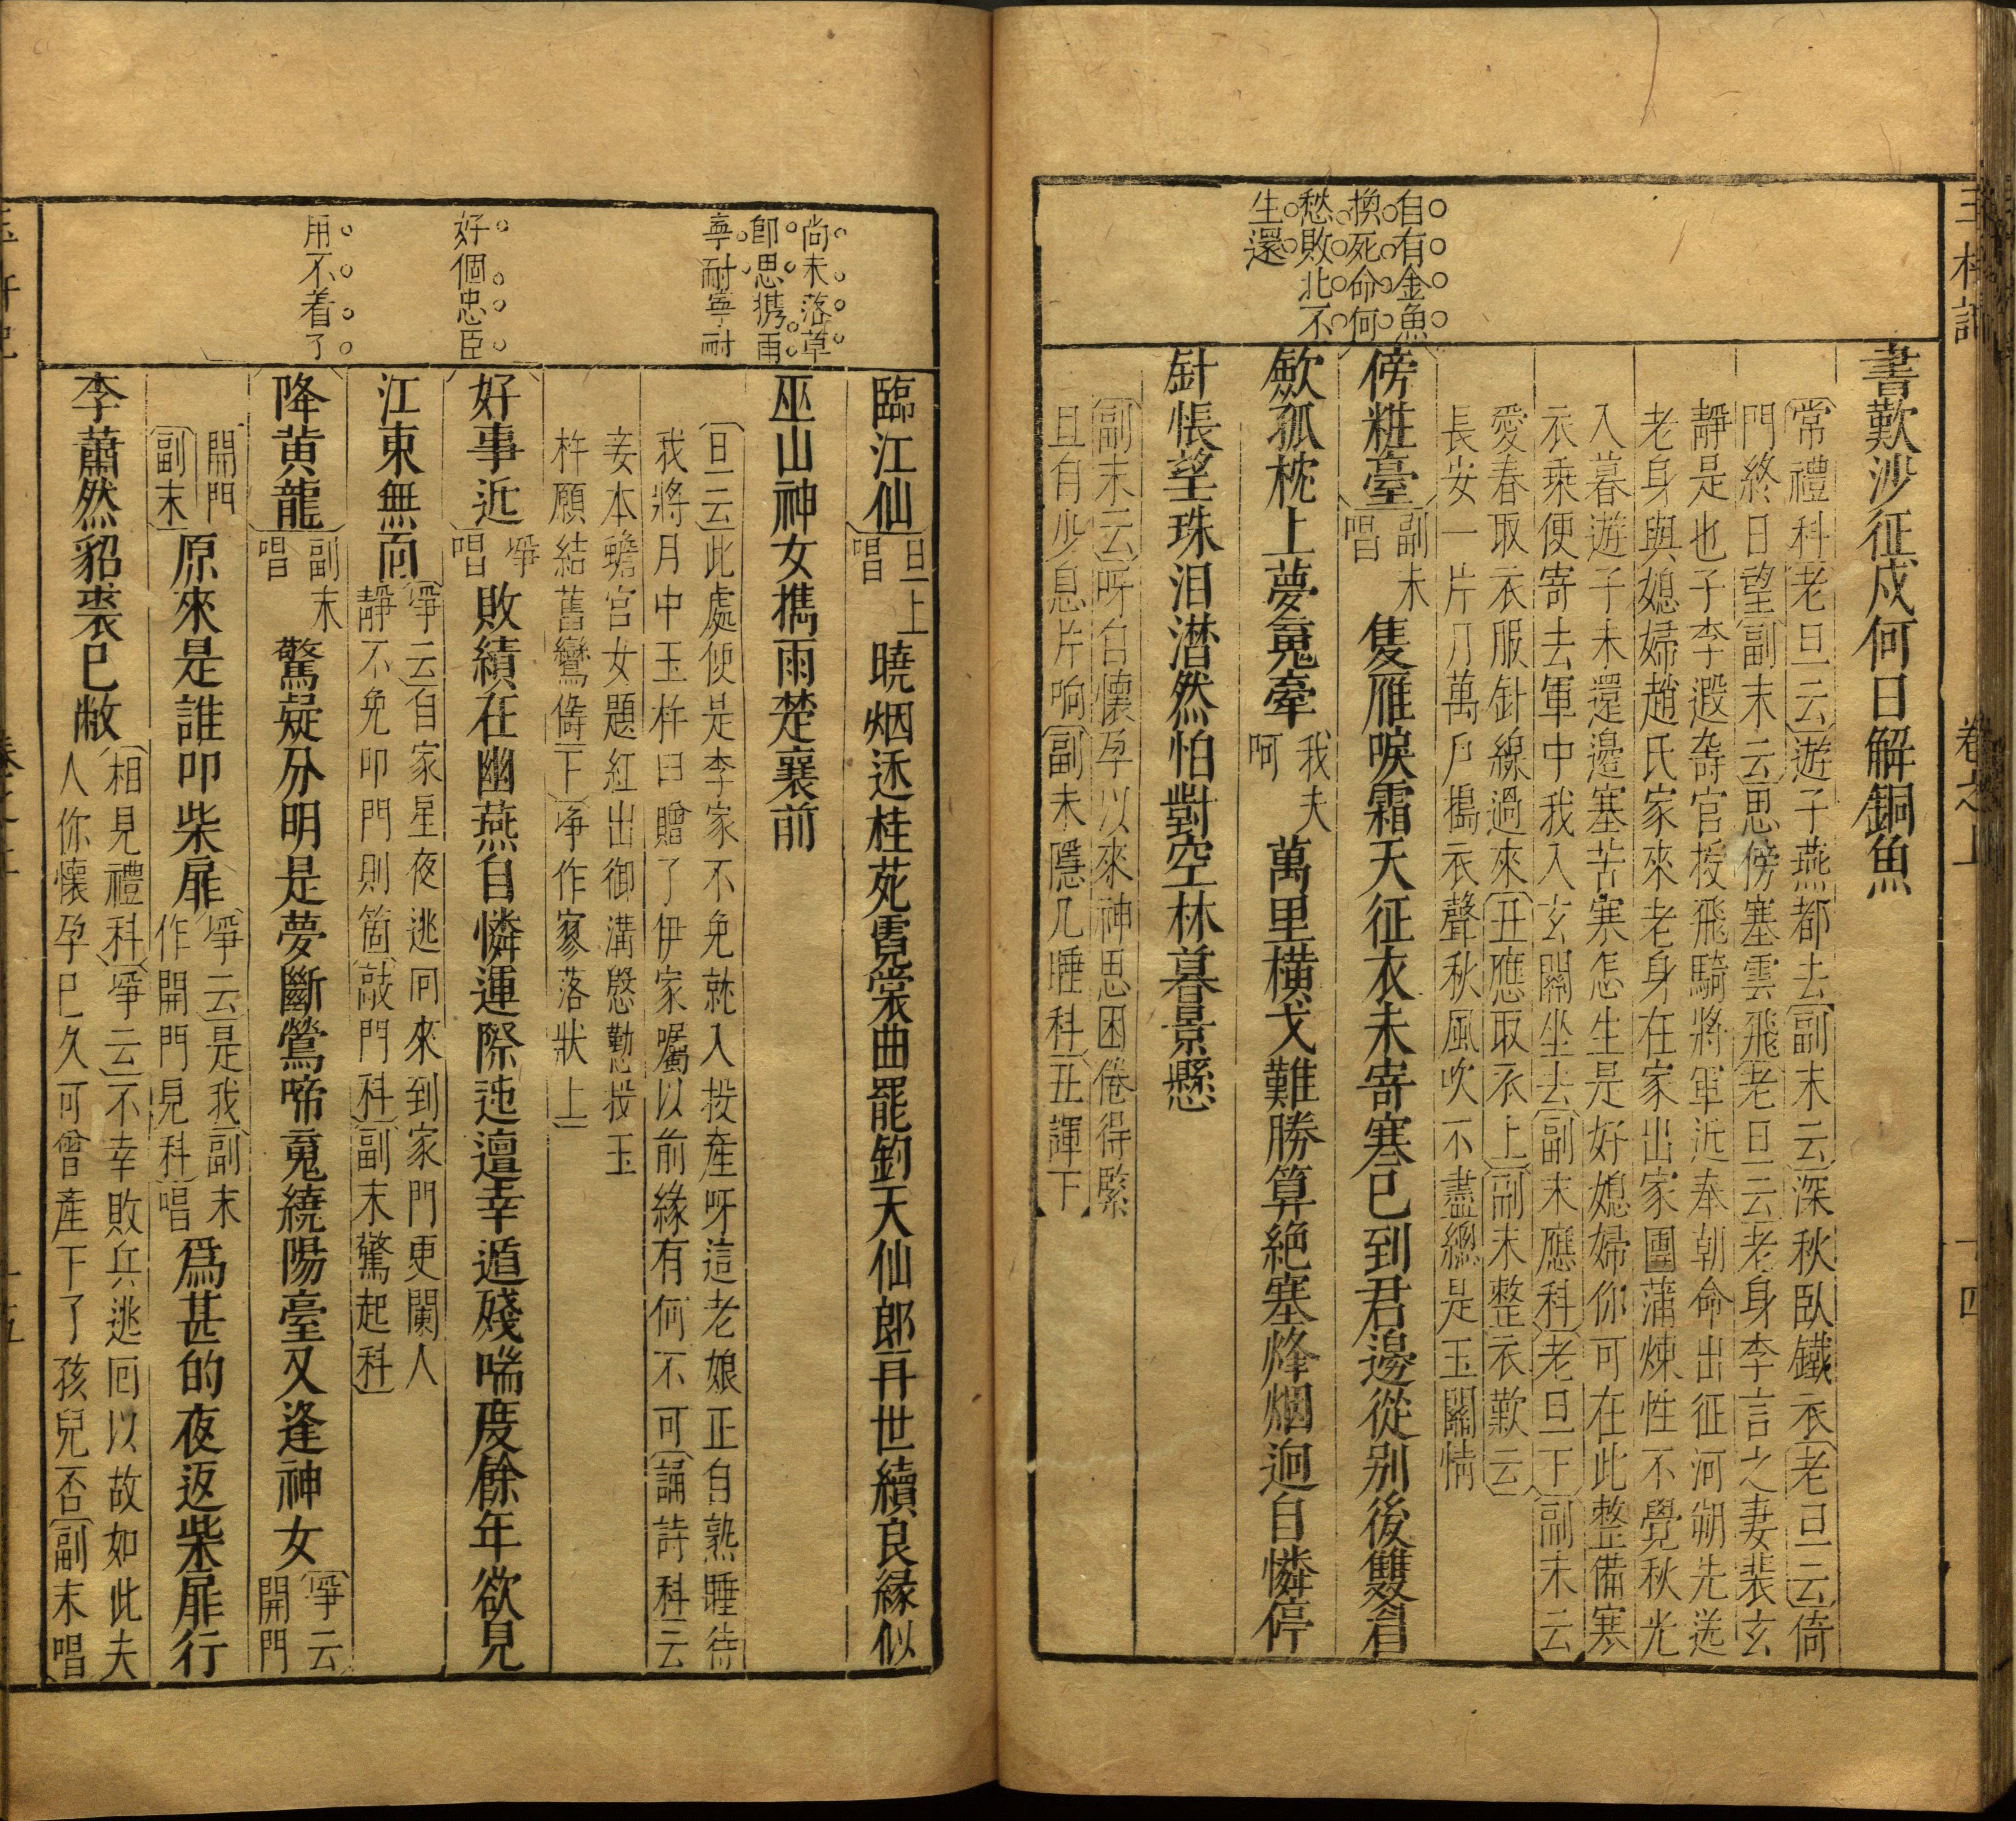 玉杵記
卷之上
十四
自有金魚
換死命何
愁敗北不
生還
書歎沙征戍何日解銅魚
常禮科老旦云遊子燕都去副末云深秋臥鐵衣老旦云倚
門終日望副末云思傍塞雲飛老旦云老身李言之妻裴玄
靜是也子李遐壽官授飛騎將軍近奉朝命出征河朔先送
老身與媳婦趙氏家來老身在家出家團蒲煉性不覺秋光
入暮遊子未還邊塞苦寒怎生是好媳婦你可在此整備寒
衣乗便寄去軍中我入玄關坐去副末應科老旦下副末云
愛春取衣服針線過來丑應取衣上副末整衣歎云
長安一片月萬戶搗衣聲秋風吹不盡總是玉關情
傍粧臺副末唱隻雁唳霜天征衣未寄寒已到君邊從别後雙眉
歛孤枕上夢䰟牽我夫呵萬里橫戈難勝算絕塞烽烟迥自憐停
針悵望珠泪潸然怕對空林暮景懸
副末云呀自懷孕以來神思困倦得緊
且自少息片晌副末隱几睡科丑諢下
尚未落草
卽思携雨
寧耐寧耐
好個忠臣
用不着了
臨江仙旦上唱曉烟迷桂苑霓裳曲罷鈞天仙郎再世續良緣似
巫山神女携雨楚襄前
旦云此處便是李家不免就入投產呀這老娘正自熟睡待
我將月中玉杵臼贈了伊家囑以前緣有何不可誦詩科云
妾本蟾宮女題紅出御溝慇懃投玉
杵願結舊鸞儔下淨作寥落狀上
好事近淨唱敗績在幽燕自憐運際迍邅幸遁殘喘度餘年欲見
江東無面淨云自家星夜逃囘來到家門更闌人
靜不免叩門則箇敲門科副末驚起科
降黄龍副末唱驚疑分明是夢斷鶯啼䰟繞陽臺又逢神女淨云開門
開門副末原來是誰叩柴扉淨云是我副末作開門見科唱爲甚的夜返柴扉行
李蕭然貂裘已敝相見禮科淨云不幸敗兵逃囘以故如此夫
人你懷孕已久可曾產下了孩兒否副末唱